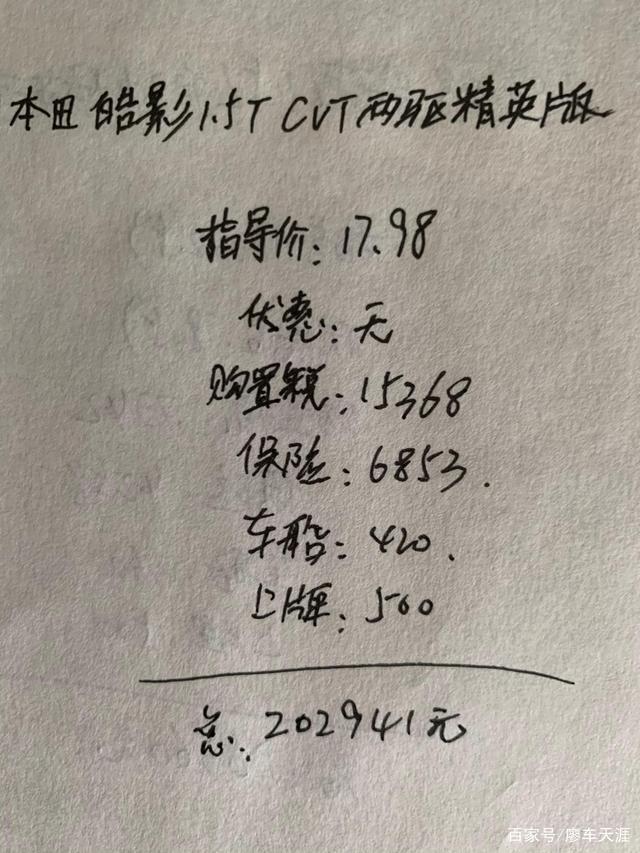 本田皓影1.5T CVT两驱精英版
指导价：17.98
优惠：无
购置税：15368
保险：6853.
车船：420.
上牌：500
总：202941元
百家号/廖车天涯